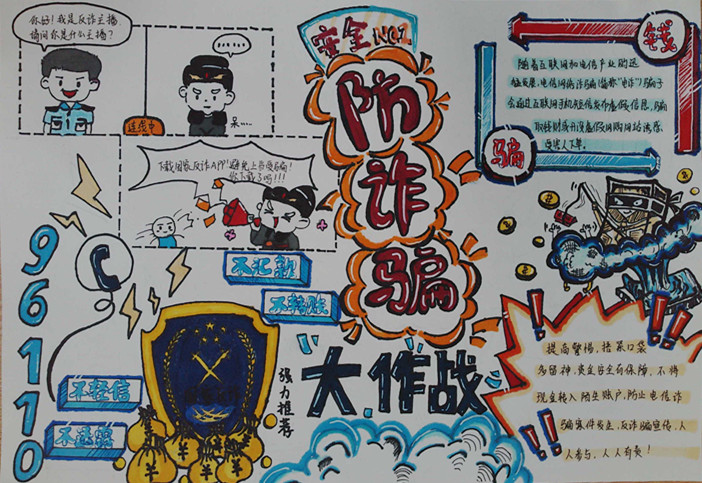 你好！我是反诈主播，
请问你是什么主播？
连线中
呆……
下载国家反诈APP，避免上当受骗！
你下载了吗！！！
96110
不汇款
不转账
不轻信
强力推荐
安全No.1
防诈骗
大作战
钱
骗
随着互联网和电信产业的迅
猛发展，电信网络诈骗（简称“电诈”）骗子
会通过互联网手机短信发布虚假信息，骗
取钱财或开设虚假网购网站诱骗
受害人下单。
提高警惕，捂紧口袋
多留神，资金安全有保障，不将
现金转入陌生账户，防止电信诈
骗案件发生，反诈骗宣传，人
人参与，人人有责！